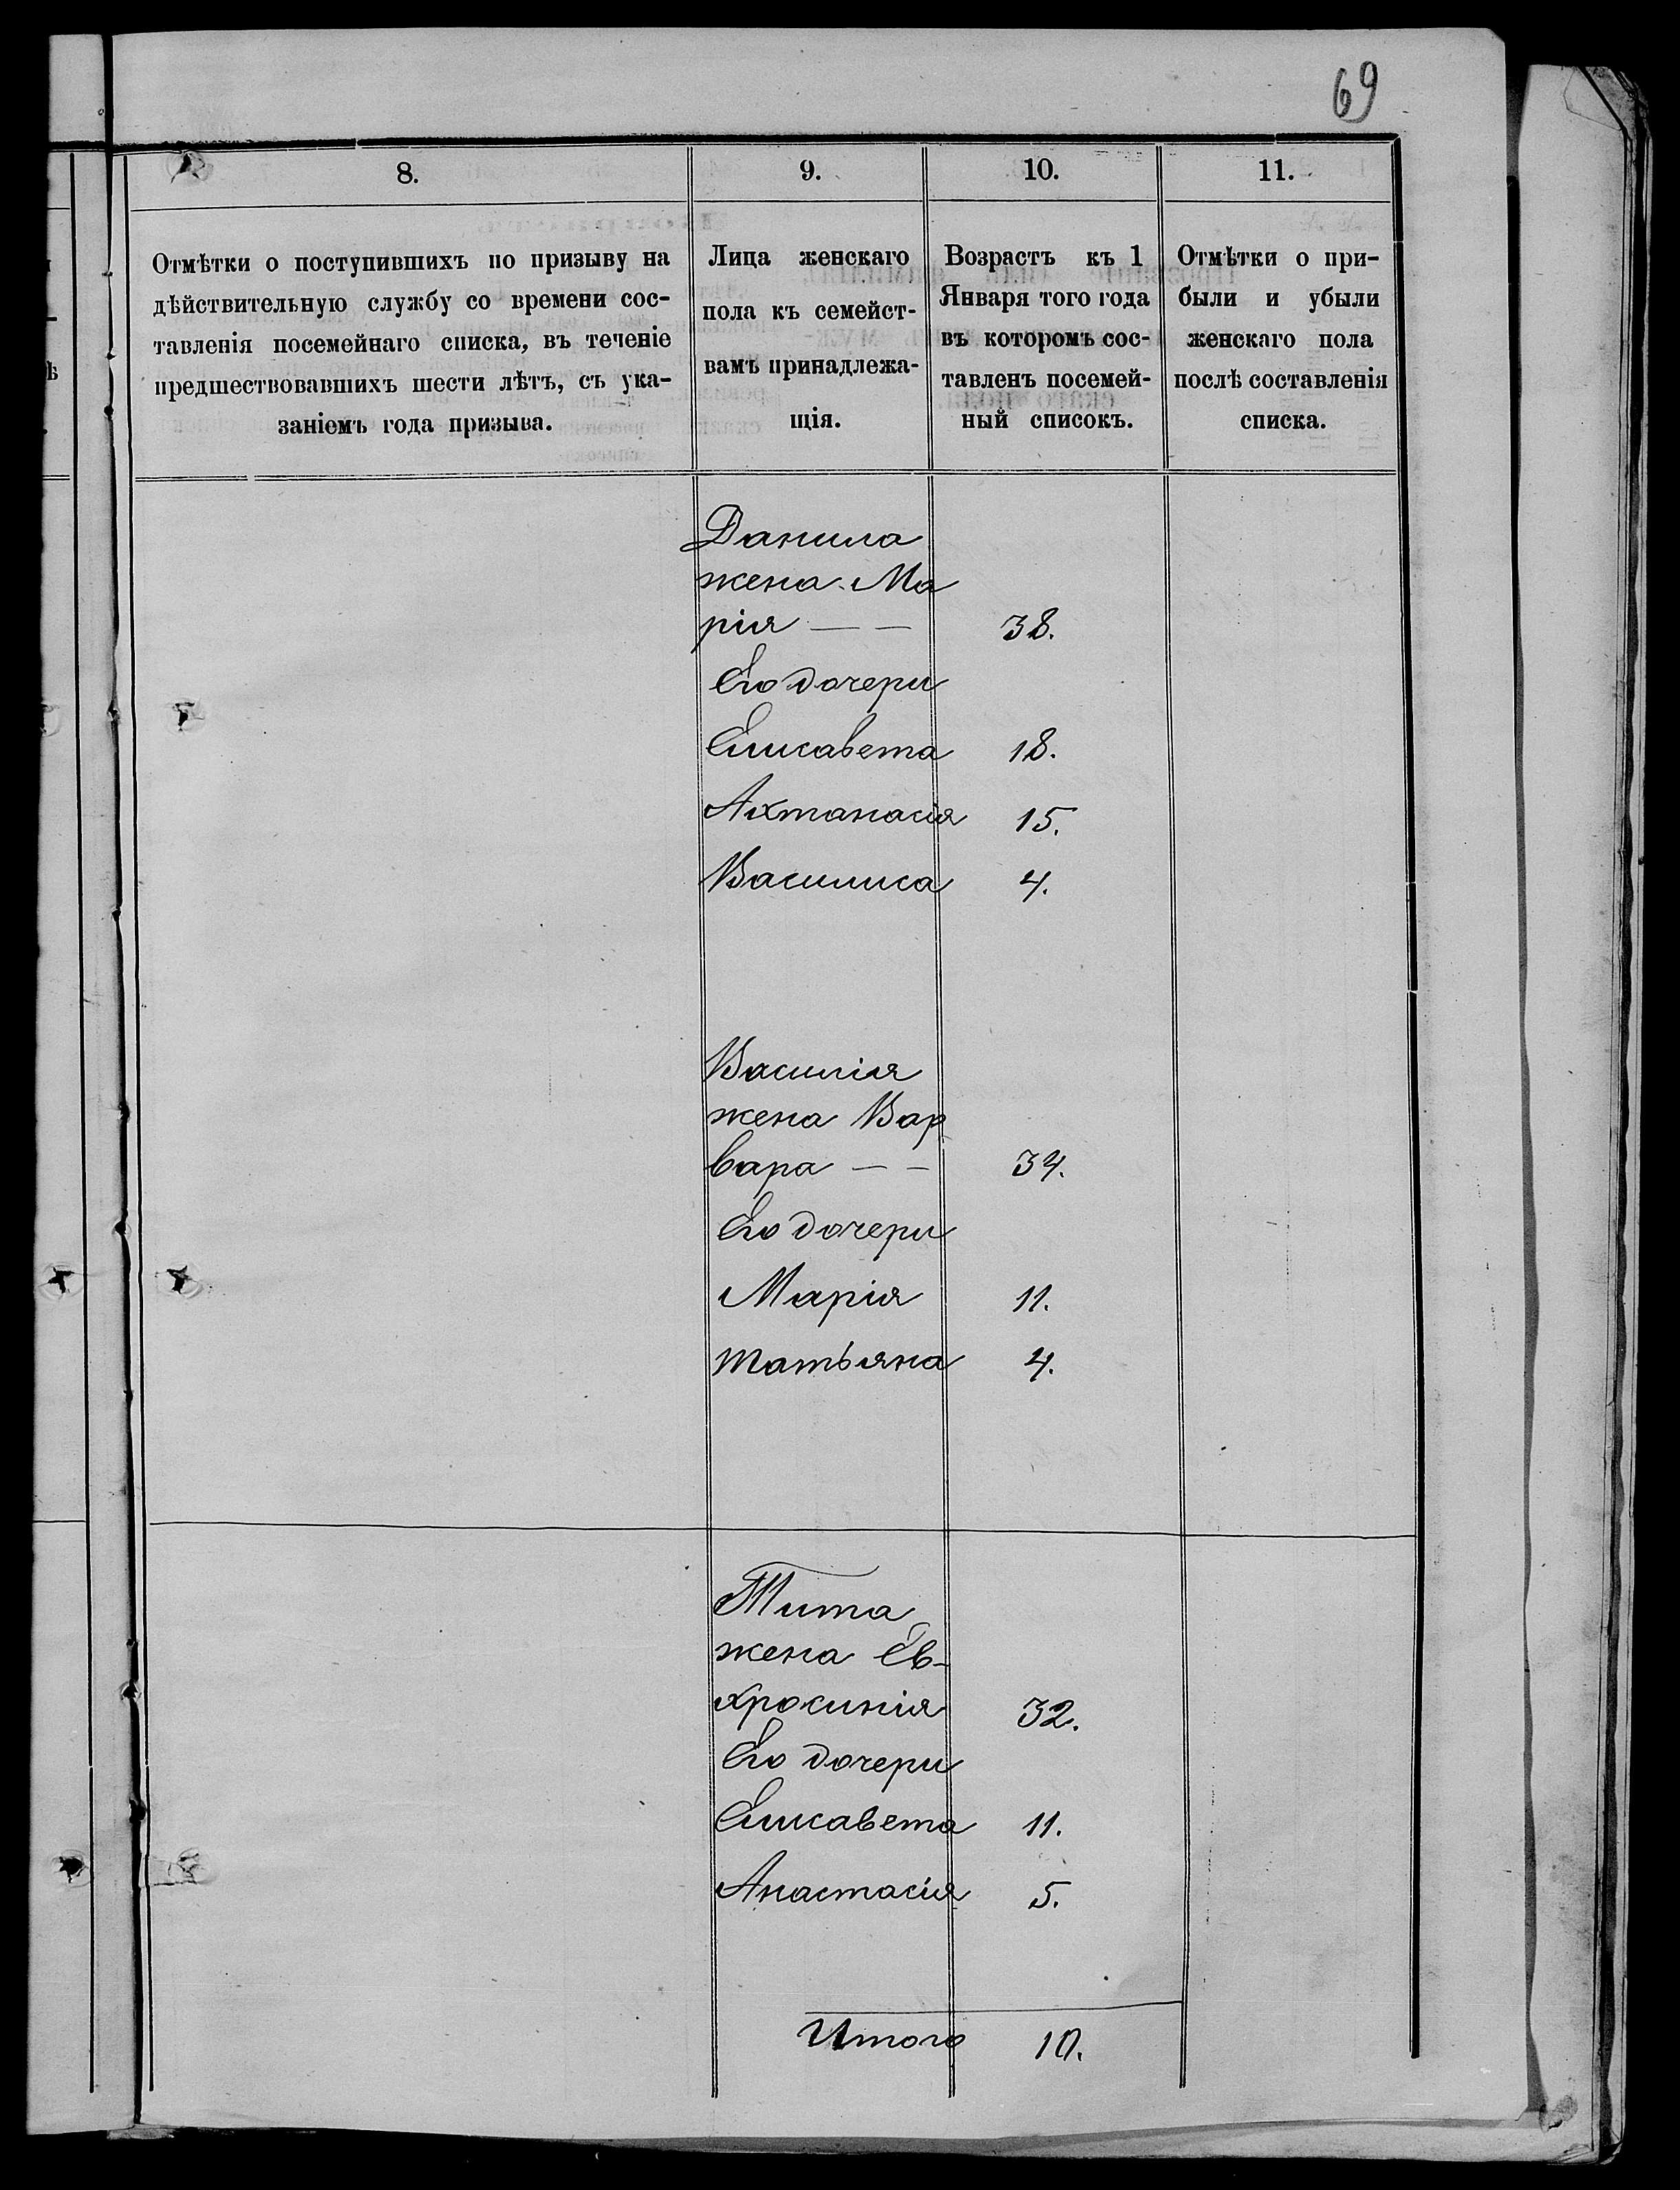 69
8.
9.
10.
11.
Отмѣтки о поступившихъ по призыву на
дѣйствительную службу со времени сос-
тавленія посемейнаго списка, въ теченіе
предшествовавшихъ шести лѣтъ, съ ука-
заніемъ года призыва.
Лица женскаго
пола къ семейст-
вамъ принадлежа-
щія.
Возрастъ къ 1
Января того года
въ которомъ сос-
тавленъ посемей-
ный списокъ.
Отмѣтки о при-
были и убыли
женскаго пола
послѣ составленія
списка.
Данила
жена Ма
рія — — 38.
Его дочери
Елисавета 18.
Ахтанасія 15.
Василиса 4.
Василія
жена Вар
вара — — 34.
Его дочери
Марія 11.
Татьяна 4.
Тита
жена Ев-
хросинія 32.
Его дочери
Елисавета 11.
Анастасія 5.
Итого 10.